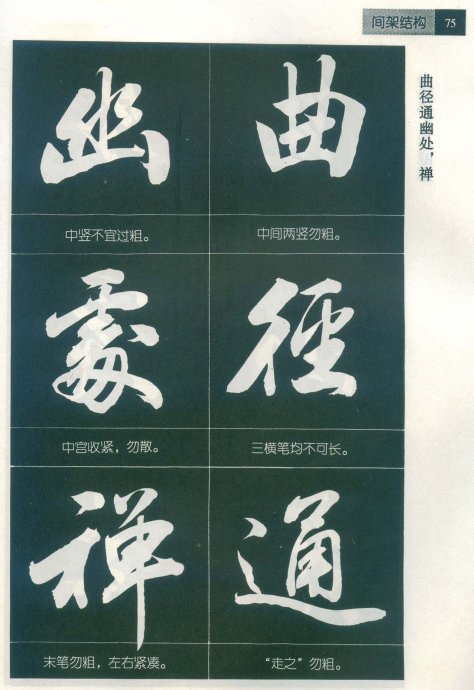 间架结构 75
曲径通幽处，禅
曲
中间两竖勿粗。
徑
三横笔均不可长。
通
“走之”勿粗。
幽
中竖不宜过粗。
處
中宫收紧，勿散。
禅
末笔勿粗，左右紧凑。